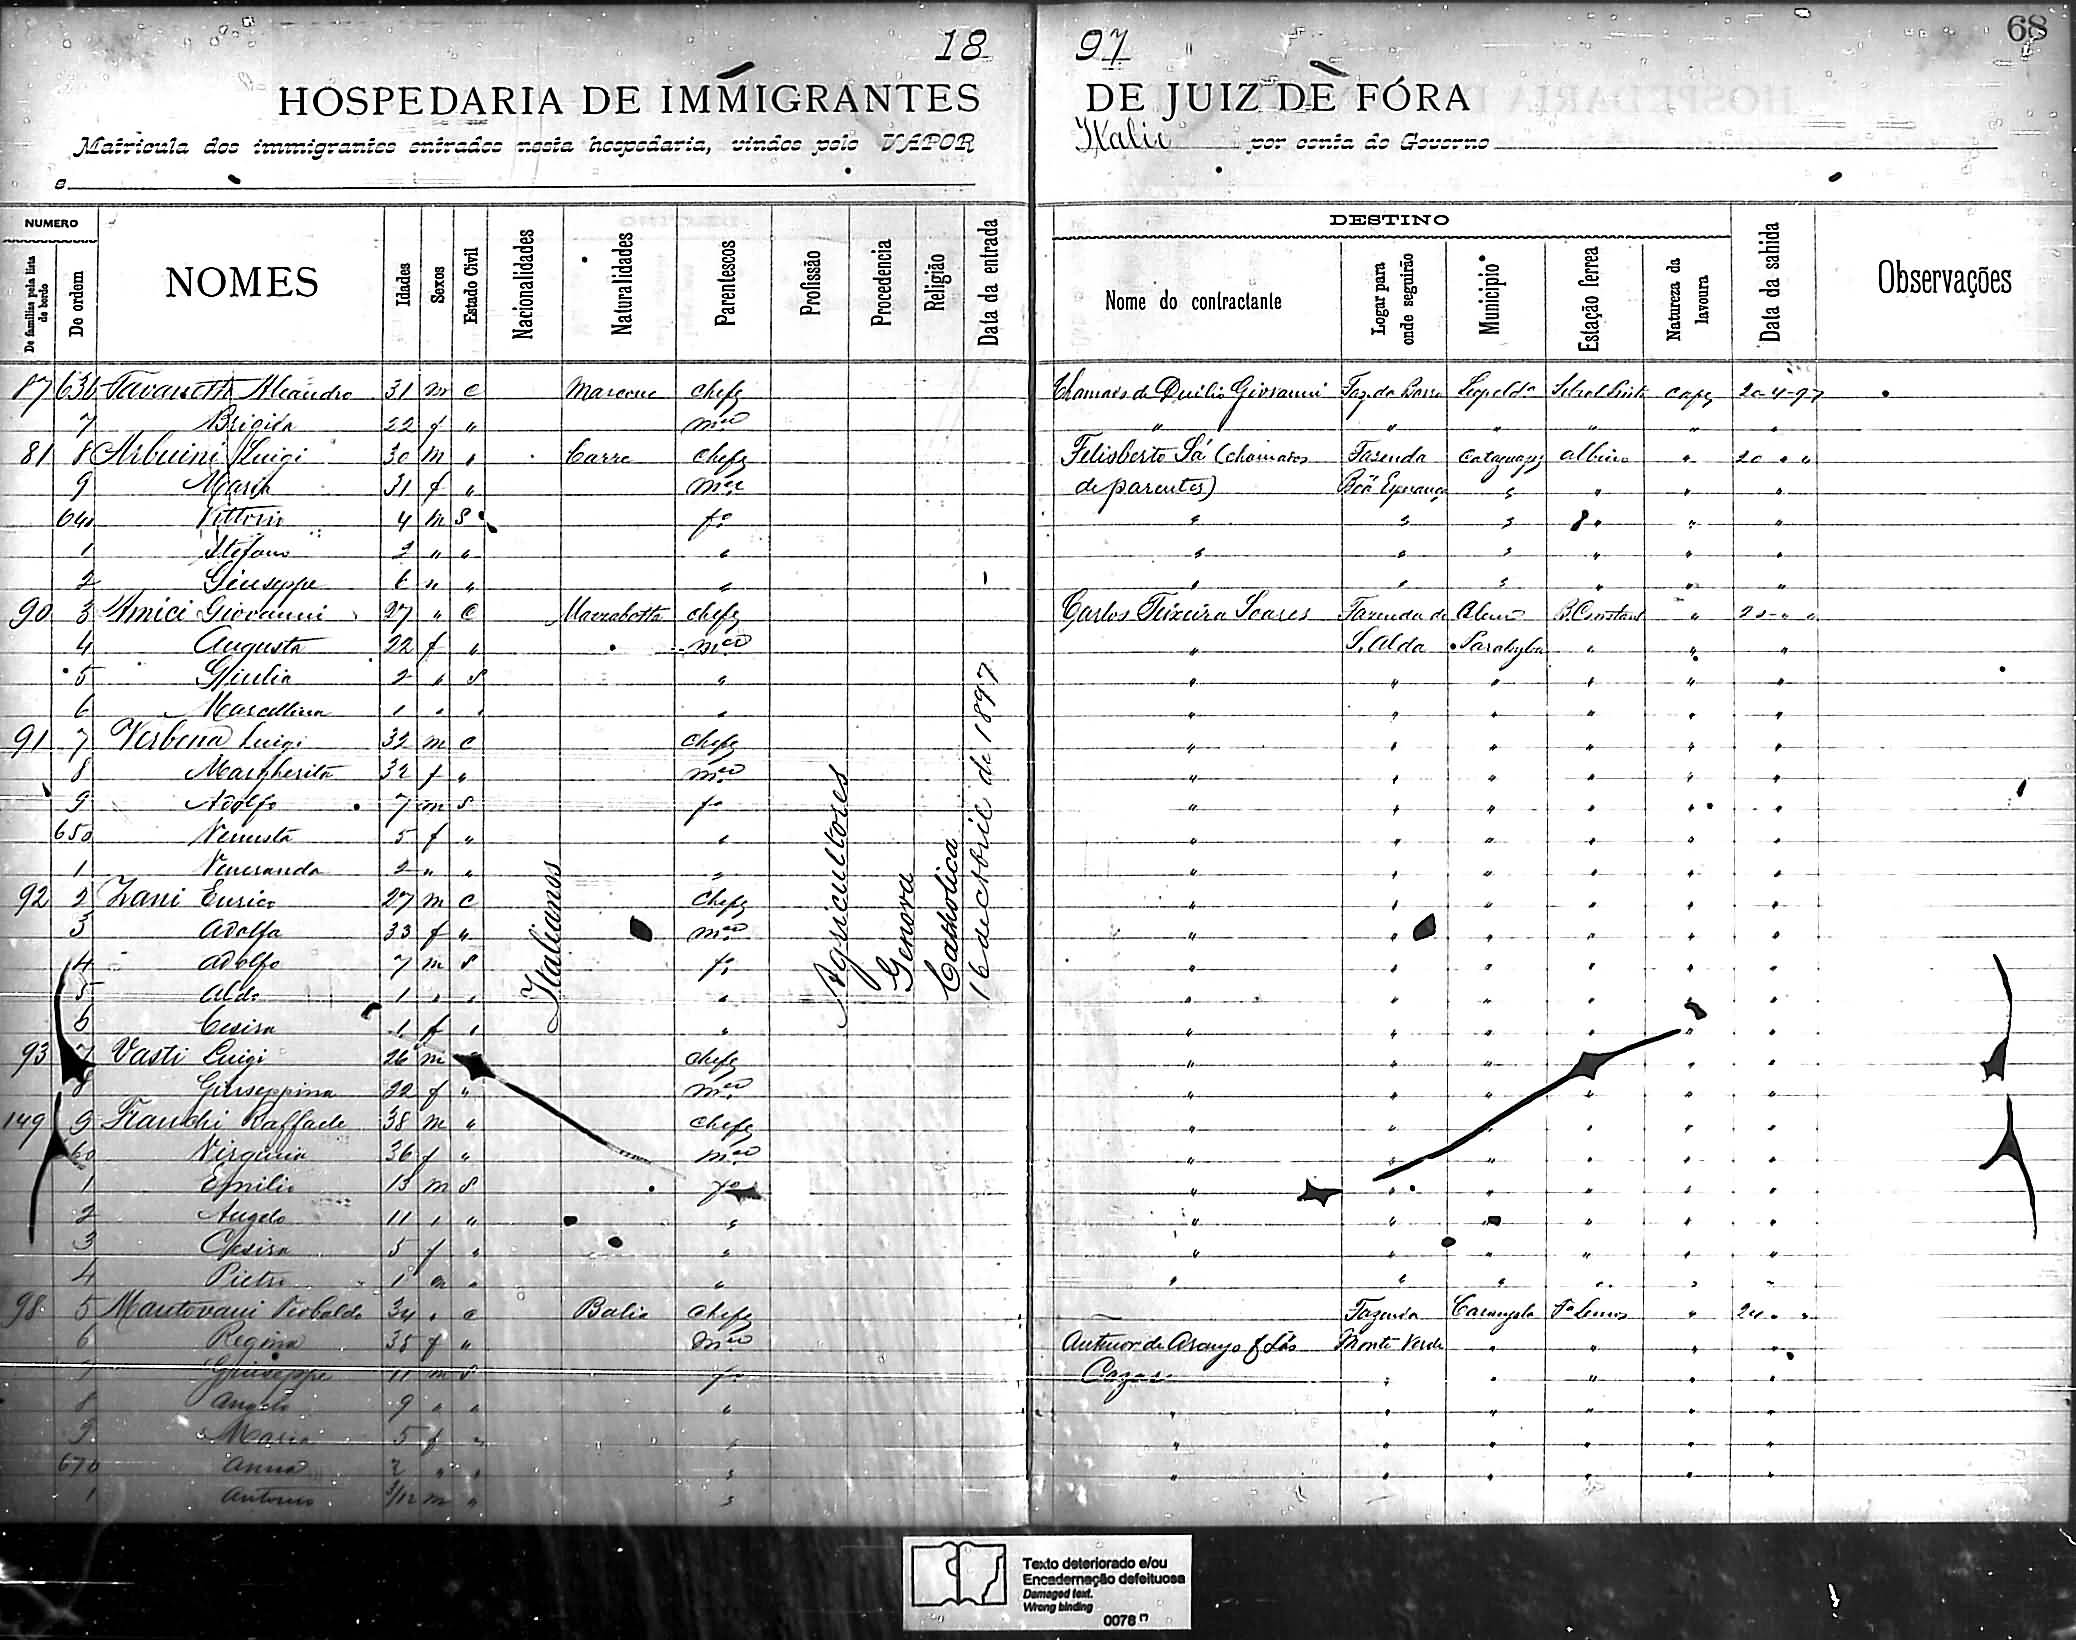 68
18 97
HOSPEDARIA DE IMMIGRANTES DE JUIZ DE FÓRA
Matricula dos immigrantes entrados nesta hospedaria, vindos pelo VAPOR Italie por conta do Governo
e
NUMERO
De familias pela lista de bordo
Do ordem
NOMES
Idades
Sexos
Estado Civil
Nacionalidades
Naturalidades
Parentescos
Profissão
Procedencia
Religião
Data da entrada
DESTINO
Nome do contractante
Logar para onde seguirão
Municipio
Estação ferrea
Natureza da lavoura
Data da sahida
Observações
Italianos
Agricultores
Genova
Catholica
16 de Abril de 1897
87 636 31 m c chefe Chamados de Duilio Giovanni Faz. da Barra Leopolda 20-4-97
7 Brigita 22 f " mer " " " " " "
81 8 Arbuini Luigi 30 m " Carre chefe Felisberto Sá (chamados Fazenda Cataguazes " 20 " "
9 Maria 31 f " mer de parentes) Boã Esperança " " " "
640 Vittorio 4 m S fo " " " " " "
1 Stefano 2 " " " " " " " " "
2 Giuseppe 6 " " " " " " " " "
90 3 Amici Giovanni 27 " C Marzabotta chefe Carlos Teixeira Soares Fazenda de Alem B. Constant " 20 " "
4 Augusta 22 f " mer " S. Alda Parahyba " " "
5 Giulia 2 " S " " " " " " "
6 Marcellina 1 " " " " " " " " "
91 7 Verbena Luigi 32 m C chefe " " " " " "
8 Margherita 32 f " mer " " " " " "
9 Adolfo 7 m S fo " " " " " "
650 Venusta 5 f " " " " " " " "
1 Veneranda 2 " " " " " " " " "
92 2 Zani Enrico 27 m C chefe " " " " " "
3 Adolfa 33 f " mer " " " " " "
4 Adolfo 7 m S fo " " " " " "
5 Aldo 1 " " " " " " " " "
6 Cesira 1 f " " " " " " " "
93 7 Vasti Luigi 26 m chefe " " " " " "
8 Giuseppina 22 f " mer " " " " " "
149 9 Franchi Raffaele 38 m " chefe " " " " " "
60 Virginia 36 f " mer " " " " " "
1 Emilio 13 m S fo " " " " " "
2 Angelo 11 " " " " " " " " "
3 Cesira 5 f " " " " " " " "
4 Pietro 1 m " " " " " " " "
98 5 Mantovani 34 " C chefe Fazenda Carangola Fa Lemos " 20 " "
6 Regina 35 f " mer de Araujo Monte Verde " " " "
7 Giuseppe 11 m S fo " " " " "
8 Angelo 9 " " " " " " " " "
9 Maria 5 f " " " " " " " "
670 Anna 2 " " " " " " " " "
1 Antonio 3/12 m " "
Texto deteriorado e/ou
Encadernação defeituosa
Damaged text.
Wrong binding
0078